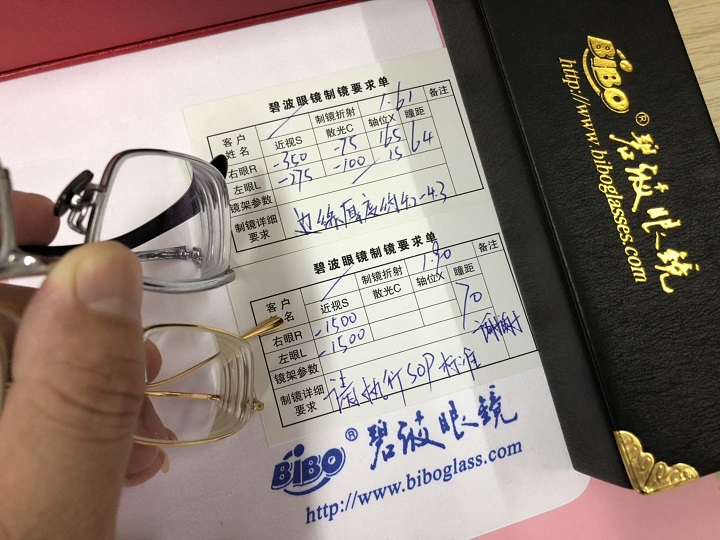 碧波眼镜制镜要求单
客户姓名 制镜折射 1.61 备注
近视S 散光C 轴位X 瞳距
右眼R -350 -75 165 64
左眼L -275 -100 15
镜架参数
制镜详细要求 边缘厚度约
碧波眼镜制镜要求单
客户姓名 制镜折射 1.90 备注
近视S 散光C 轴位X 瞳距
右眼R -1500 70
左眼L -1500
镜架参数
制镜详细要求 请执行SOP标准 谢谢
BiBO ® 碧波眼镜
http://www.biboglass.com
BiBO ® 碧波眼镜
http://www.biboglasses.com